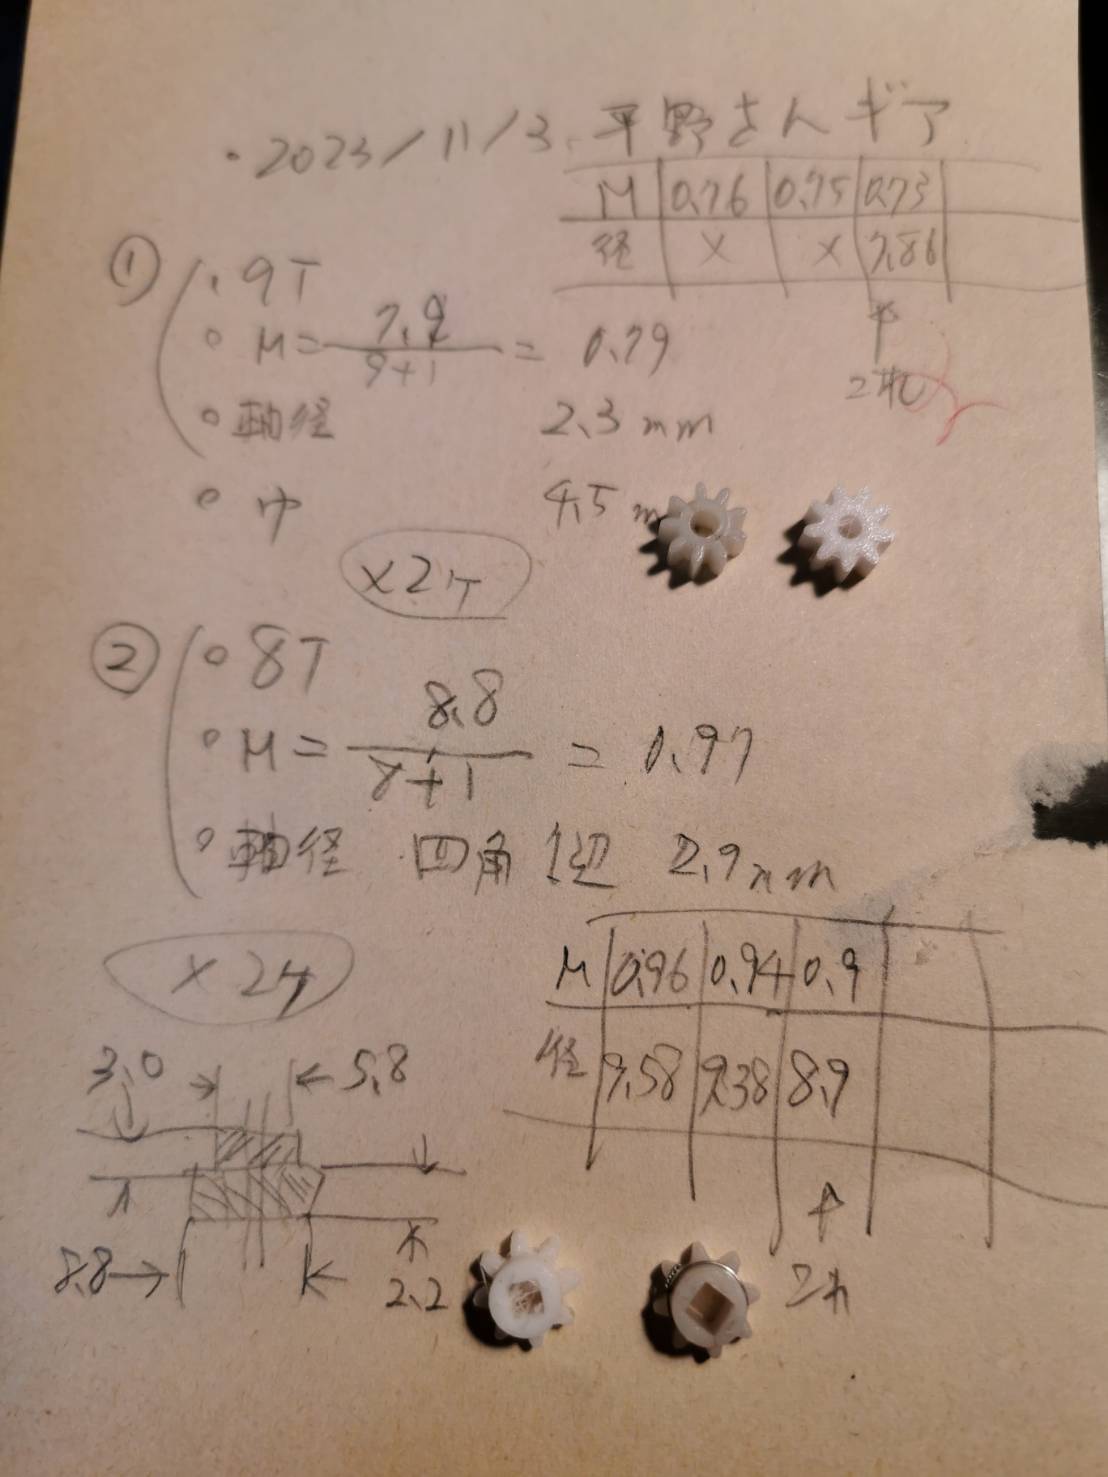 ・2023/11/3、平野さんギア
M 0.76 0.75 0.73
径 × × 7.86
↑
これ
① ・9T
○ M = 7.9 / 9+1 = 0.79
○ 軸径 2.3mm
○ 巾 4.5m
×2ケ
② ○ 8T
○ M = 8.8 / 8+1 = 0.97
○ 軸径 四角1辺 2.9mm
×2ケ
M 0.96 0.94 0.9
径 9.58 9.38 8.9
↑
これ
3.0 5.8
8.8 2.2